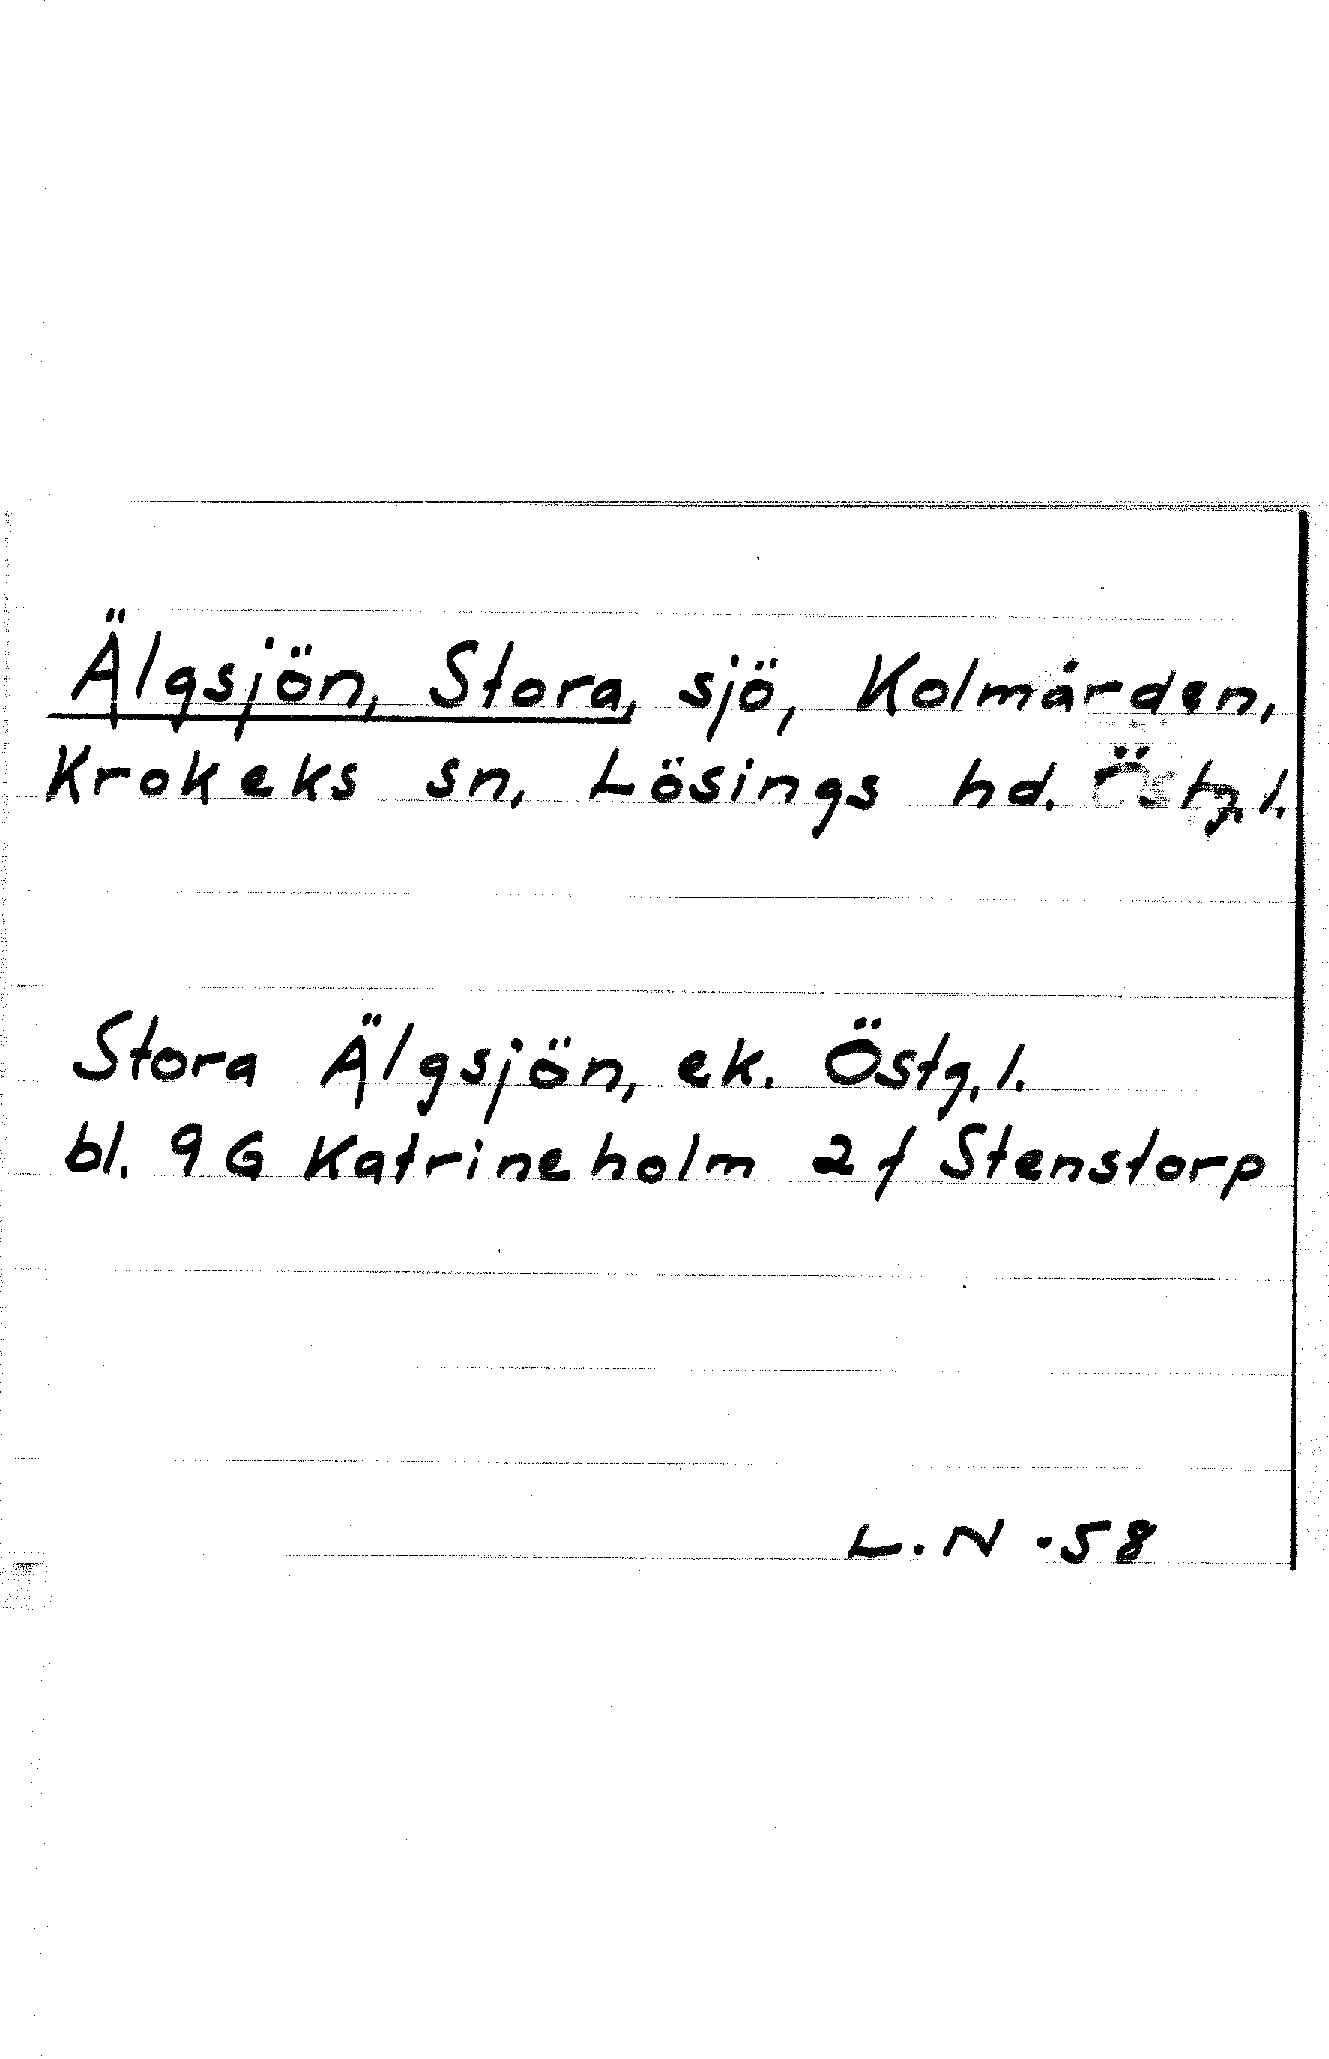 Älgsjön, Stora, sjö, Kolmården,
Krokeks sn, Lösings hd. Östg.l.
Stora Älgsjön, ek. Östg.l.
bl. 9 G Katrineholm 2 f Stenstorp
L.N. 58